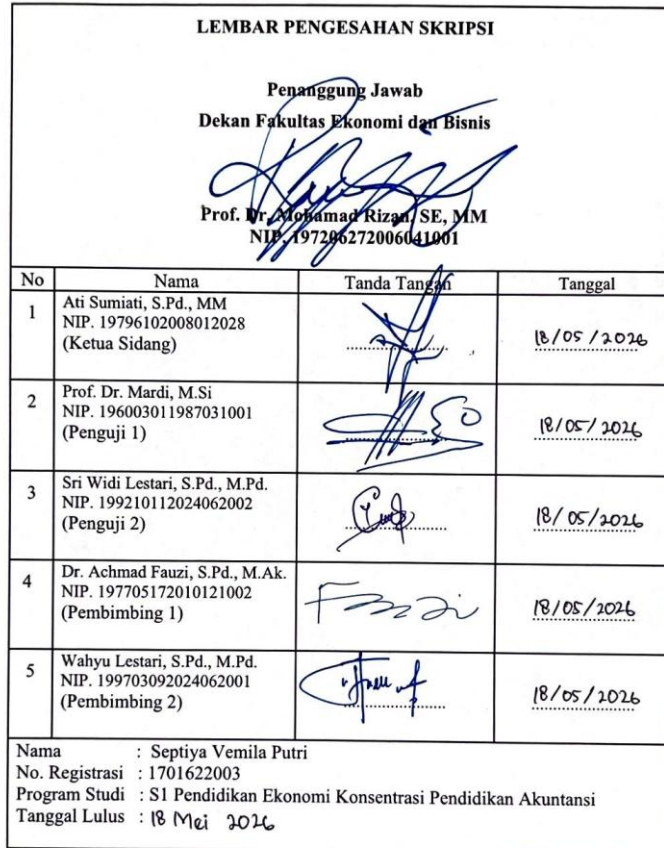 LEMBAR PENGESAHAN SKRIPSI
Penanggung Jawab
Dekan Fakultas Ekonomi dan Bisnis
Prof. Dr. Mohamad Rizan, SE, MM
NIP. 197206272006041001
No Nama Tanda Tangan Tanggal
1 Ati Sumiati, S.Pd., MM
NIP. 19796102008012028
(Ketua Sidang)
18/05/2026
2 Prof. Dr. Mardi, M.Si
NIP. 196003011987031001
(Penguji 1)
18/05/2026
3 Sri Widi Lestari, S.Pd., M.Pd.
NIP. 199210112024062002
(Penguji 2)
18/05/2026
4 Dr. Achmad Fauzi, S.Pd., M.Ak.
NIP. 197705172010121002
(Pembimbing 1)
18/05/2026
5 Wahyu Lestari, S.Pd., M.Pd.
NIP. 199703092024062001
(Pembimbing 2)
18/05/2026
Nama : Septiya Vemila Putri
No. Registrasi : 1701622003
Program Studi : S1 Pendidikan Ekonomi Konsentrasi Pendidikan Akuntansi
Tanggal Lulus : 18 Mei 2026